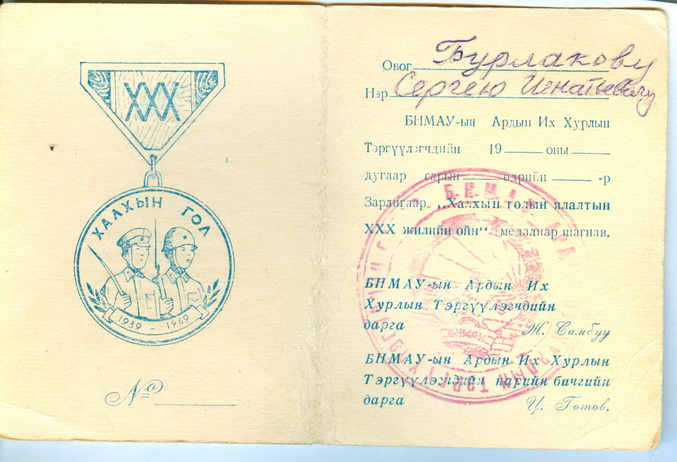 XXX
ХАЛХЫН ГОЛ
1939 - 1969
№
Овог Бурлакову
Нэр Сергею Игнатьевичу
БНМАУ-ын Ардын Их Хурлын
Тэргүүлэгчдийн 19 оны
дугаар сарын өдрийн -р
Зарлигаар „Халхын голын ялалтын
XXX жилийн ойн" медалиар шагнав.
БНМАУ-ын Ардын Их
Хурлын Тэргүүлэгчдийн
дарга Ж. Самбуу
БНМАУ-ын Ардын Их Хурлын
Тэргүүлэгчдийн нарийн бичгийн
дарга Ц. Готов.